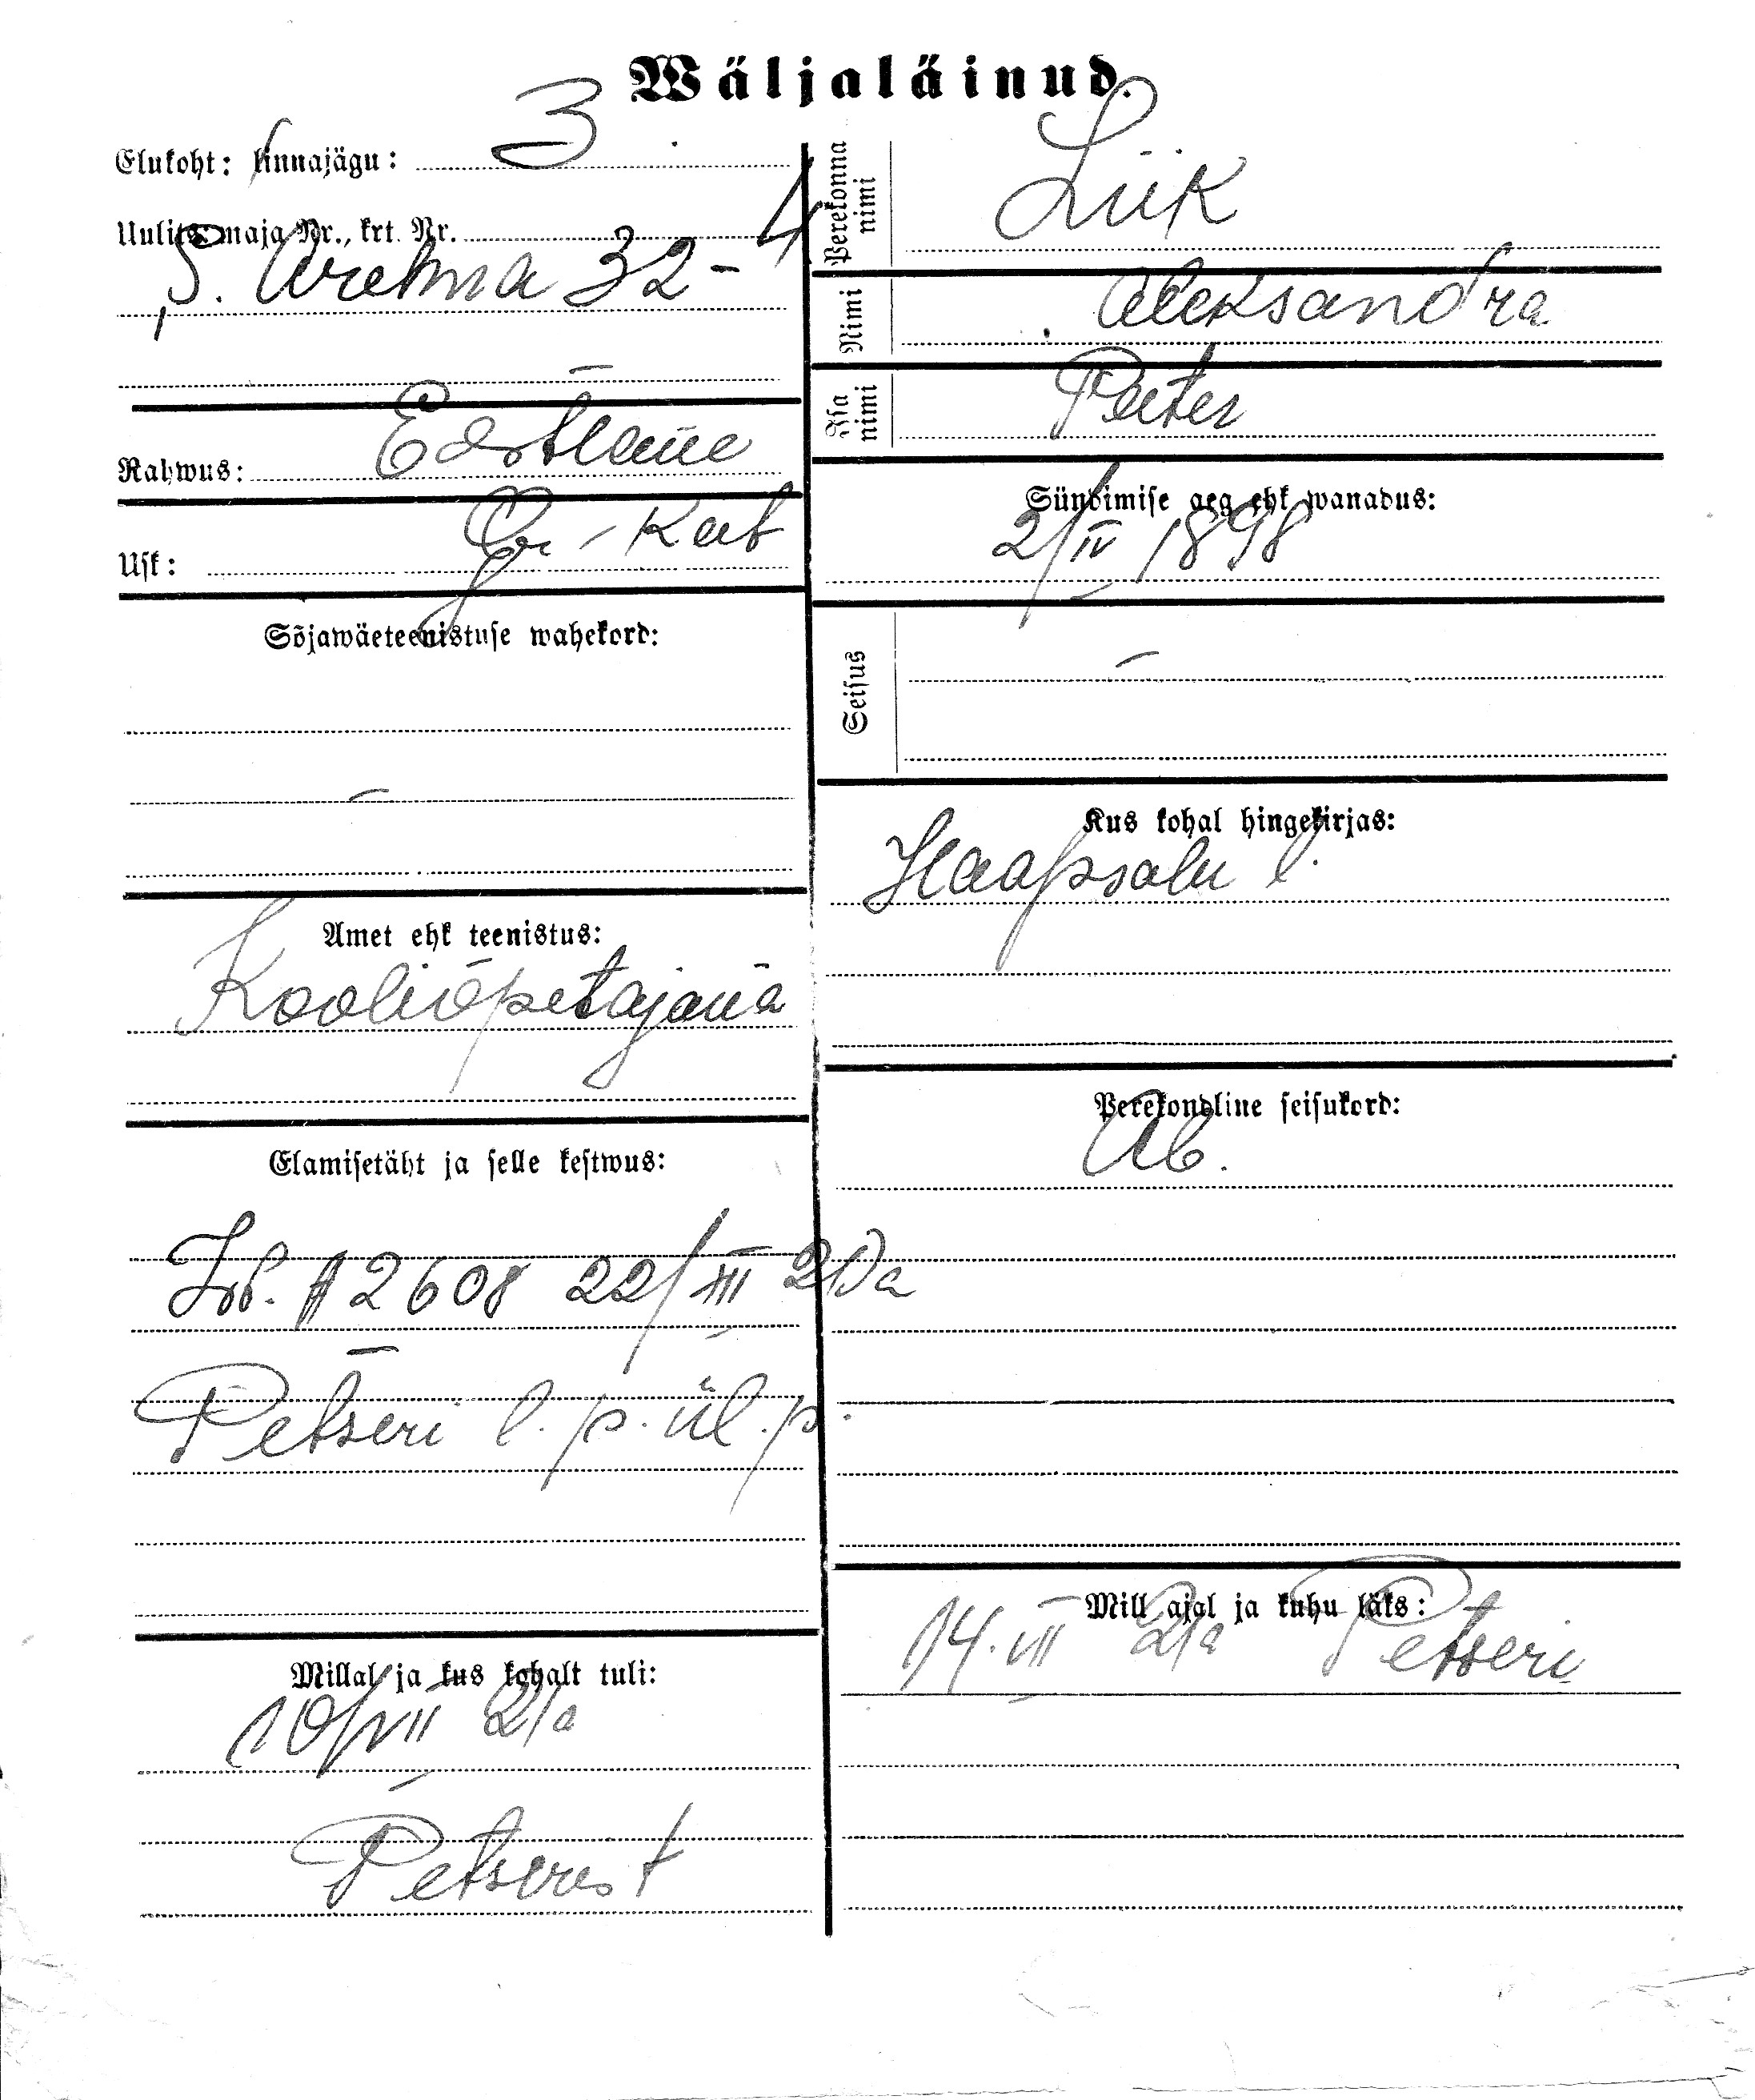 Wäljaläinud.
Elukoht: linnajägu: 3
Uulits, maja Nr., krt. Nr.
S. Arekna 32-4
Rahwus: Eestlane
Usk: Gr-Kat
Sõjawäeteenistuse wahekord:
-
Amet ehk teenistus:
Kooliõpetajana
Elamisetäht ja selle kestwus:
2608 22/XII 20a
Petseri l. p. ül. p.
Millal ja kus kohalt tuli:
10/VII 21a
Petserist
Perekonna nimi
Liik
Nimi
Aleksandra
Isa nimi
Peeter
Sündimise aeg ehk wanadus:
2/IV 1898
Seisus
-
Kus kohal hingekirjas:
Haapsalu l.
Perekondline seisukord:
Ab.
Mill ajal ja kuhu läks:
14. VII 21a Petseri